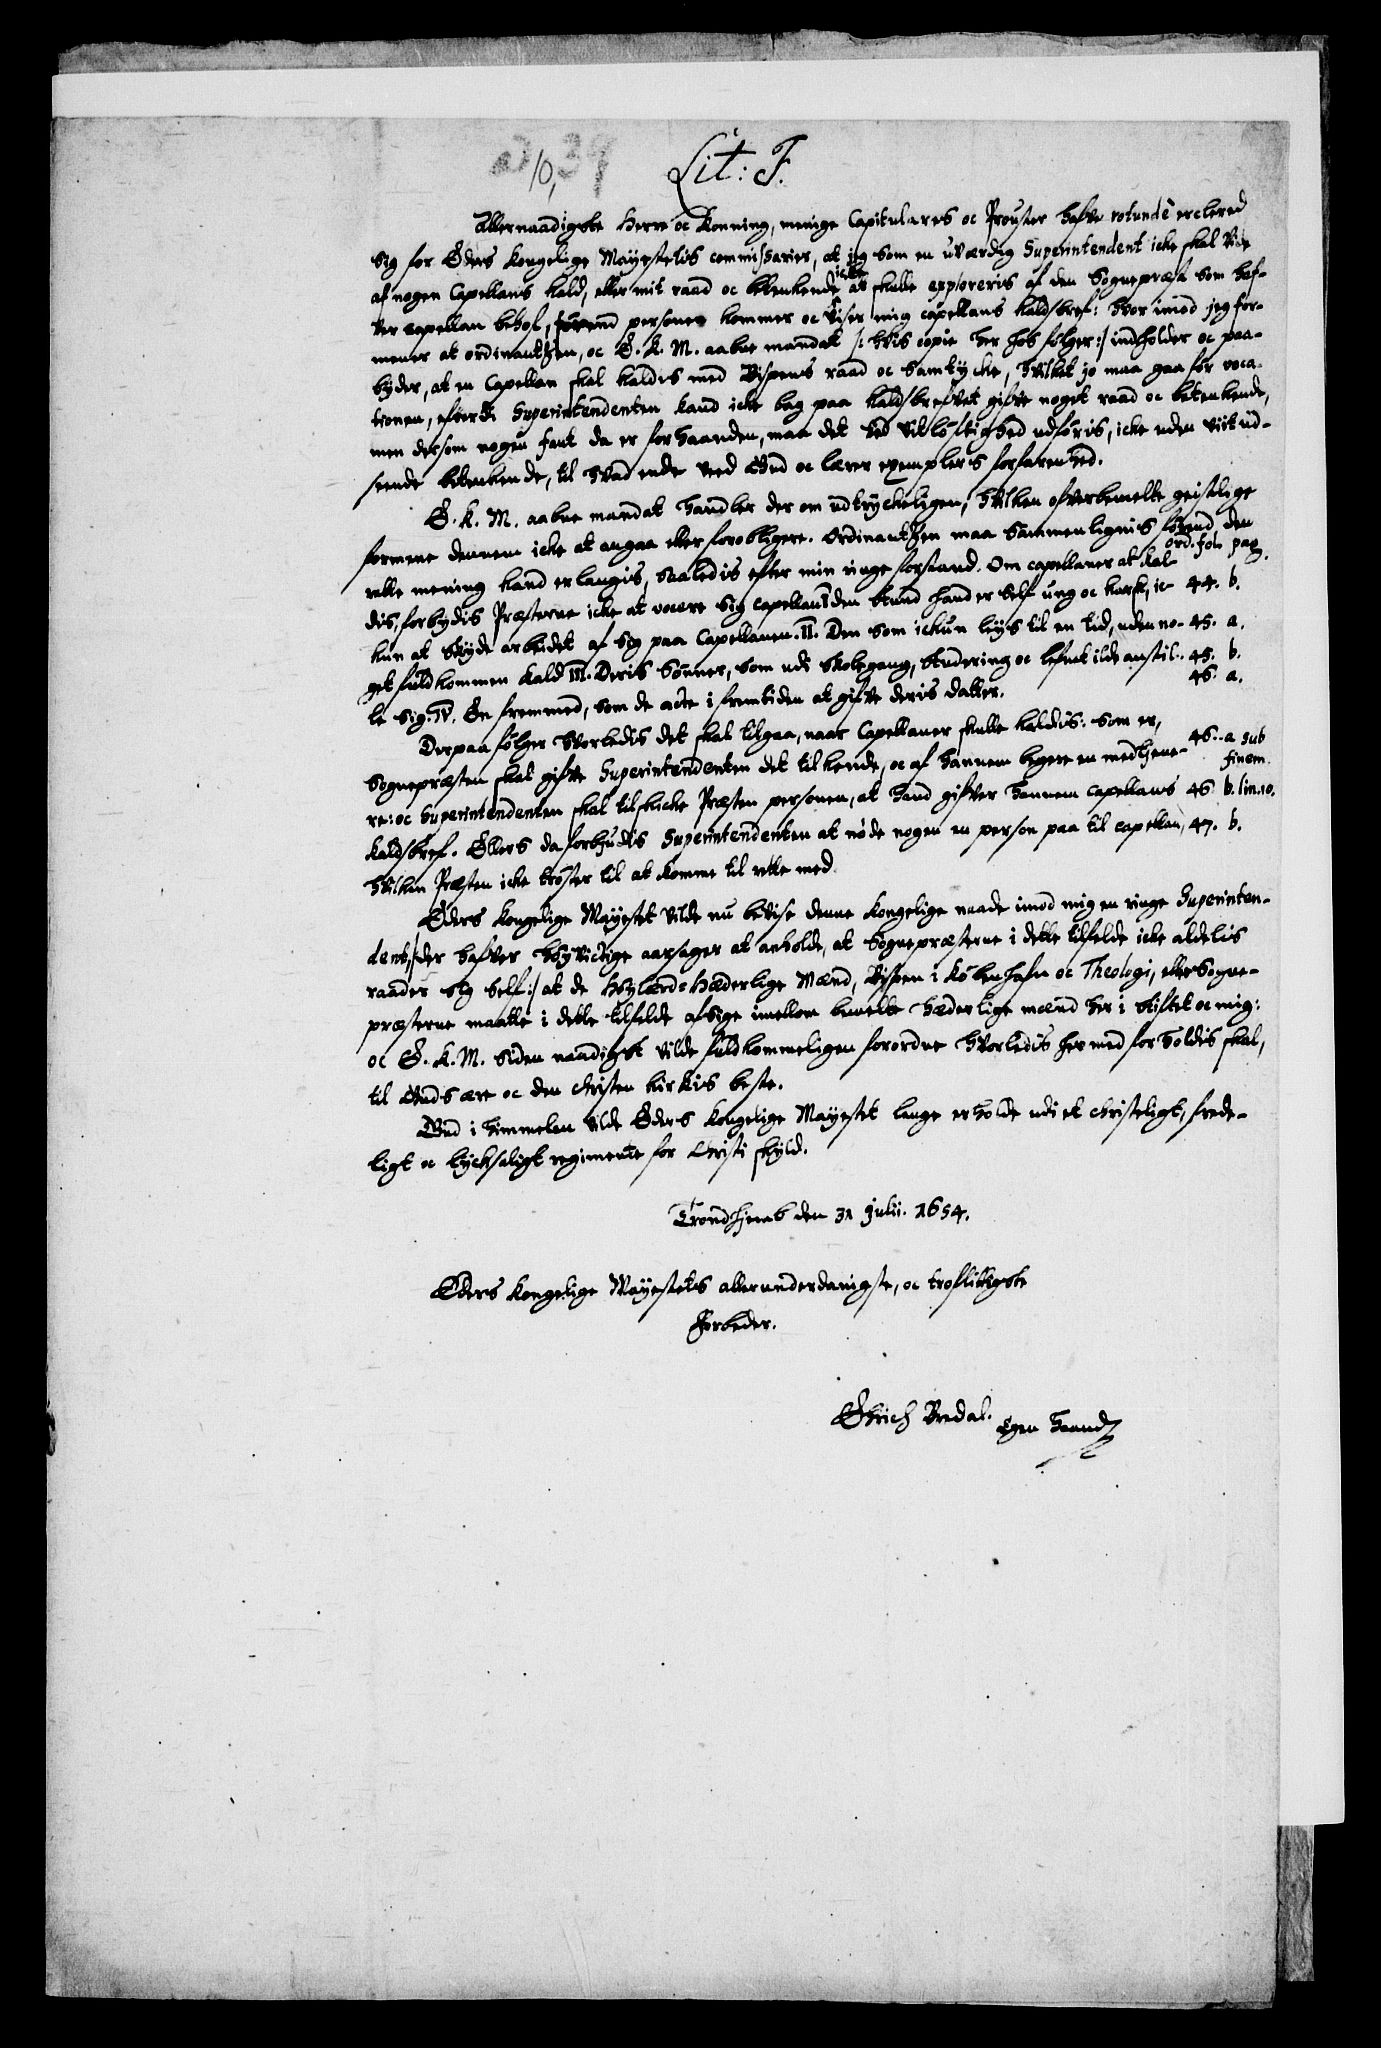 ad 10, 39
Lit: F.
Allernaadigste Herre oc Konning, menige Capitulares oc Prouster hafve rotundè erclered
sig for Eders Kongelige Mayestetis commissarier, at jeg som en uværdig Superintendent icke skal vide
af nogen Capellans kald, eller mit raad oc betenkende icke at skulle exploreris af den Sognepræst som haf-
ver capellan behof, førend personen kommer oc viser mig capellans kaldsbref: hvor imod jeg for-
mener at ordinantzen, oc E. K. M. aabne mandat /: hvis copie her hos følger :/ indholder oc paa-
byder, at en Capellan skal kaldis med Bispens raad oc samtycke, hvilket jo maa gaa for voca-
tionen, efterdi Superintendenten kand icke bag paa kaldsbrefvet gifve noget raad oc betenkende,
men dersom nogen faut da er forhaanden, maa det ved vitløftighed udføris, icke uden viit ud-
seende betenkende, til hvad ende veed Gud oc lærer exemplers forfarenhed.
E. K. M. aabne mandat handler der om udtryckeligen, hvilken ofverbemelte geistlige
formene dennem icke at angaa eller forobligere. Ordinantzen maa sammenlignis førend den
rette mening kand erlangis, saaledis efter min ringe forstand. Om capellaner at kal- ord. fol. pag.
dis, forbydis Præsterne icke at vocere sig capellan I den stund hand er self ung oc karsk, ic- 44. b.
kun at skyde arbeidet af sig paa Capellanen. II. Den som ickun leys til en tid, uden no- 45. a.
get fuldkommen kald III. Deris Sønner, som udi skolegang, studering oc lefnet ilde anstil- 45. b.
le sig. IV. En fremmed, som de acte i fremtiden at gifve deris datter. 46. a.
Derpaa følger hvorledis det skal tilgaa, naar Capellaner skulle kaldis: som er,
Sognepræsten skal gifve Superintendenten det tilkende, oc af hannem begere en medtjene- 46. a sub finem.
re: oc Superintendenten skal tilskicke Præsten personen, at hand gifver hannem capellans 46. b. lin. 10.
kaldsbref. Ellers da forbiudis Superintendenten at nøde nogen en person paa til capellan, 47. b.
hvilken Præsten icke trøster til at komme til rette med.
Eders Kongelige Mayestet vilde nu bevise denne kongelige naade imod mig en ringe Superinten-
dent, /: der hafver høyvictige aarsager at anholde, at Sognepræsterne i dette tilfelde icke aldelis
raader sig self :/ at de Høylærde Hæderlige Mænd, Bispen i Kiøbenhafn oc Theologi, eller Sogne-
præsterne maatte i dette tilfelde afsige imellom bemelte hæderlige mænd her i stiftet oc mig:
oc E. K. M. siden naadigst vilde fuldkommeligen forordne hvorledis her med forholdis skal,
til Guds ære oc den christen kirkis beste.
Gud i himmelen vilde Eders Kongelige Mayestet lenge erholde udi et christeligt, frede-
ligt oc lycksaligt regimente for Christi skyld.
Trondhjemb den 31 Julii. 1654.
Eders Kongelige Mayestetis allerunderdanigste, oc troflittigste
Forbeder.
Erich Bredal. Egen Haand